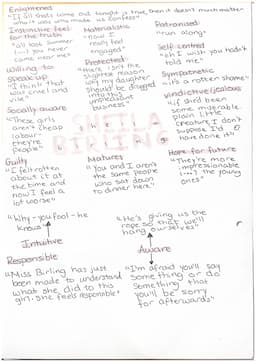 Enlightened
"If all that's come out tonight is true, then it doesn't much matter
who it was who made us confess"
Instinctive feel
for the truth
"all last summer
(...) you never
came near me"
Materialistic
"now I
really feel
engaged"
Patronised
"run along"
Willing to
speak up
"I think that
was cruel and
vile"
Protected
"there isn't the
slightest reason
why my daughter
should be dragged
into this
unpleasant
business"
Self control
"oh I wish you hadn't
told me"
Sympathetic
"it's a rotten shame"
Socially aware
"These girls
aren't cheap
labour -
they're
people"
SHEILA
BIRLING
Vindictive/jealous
"if she'd been
some miserable
plain little
creature, I don't
suppose I'd
have done it"
Guilty
"I felt rotten
about it at
the time and
now I feel a
lot worse"
Matures
"You and I aren't
the same people
who sat down
to dinner here"
Hope for future
"They're more
impressionable
(...) the young
ones"
"Why - you fool - he
knows"
Intuitive
"He's giving us the
rope so that we'll
hang ourselves"
Aware
Responsible
"Miss Birling has just
been made to understand
what she did to this
girl. She feels responsible"
"I'm afraid you'll say
something or do
something that
you'll be sorry
for afterwards"